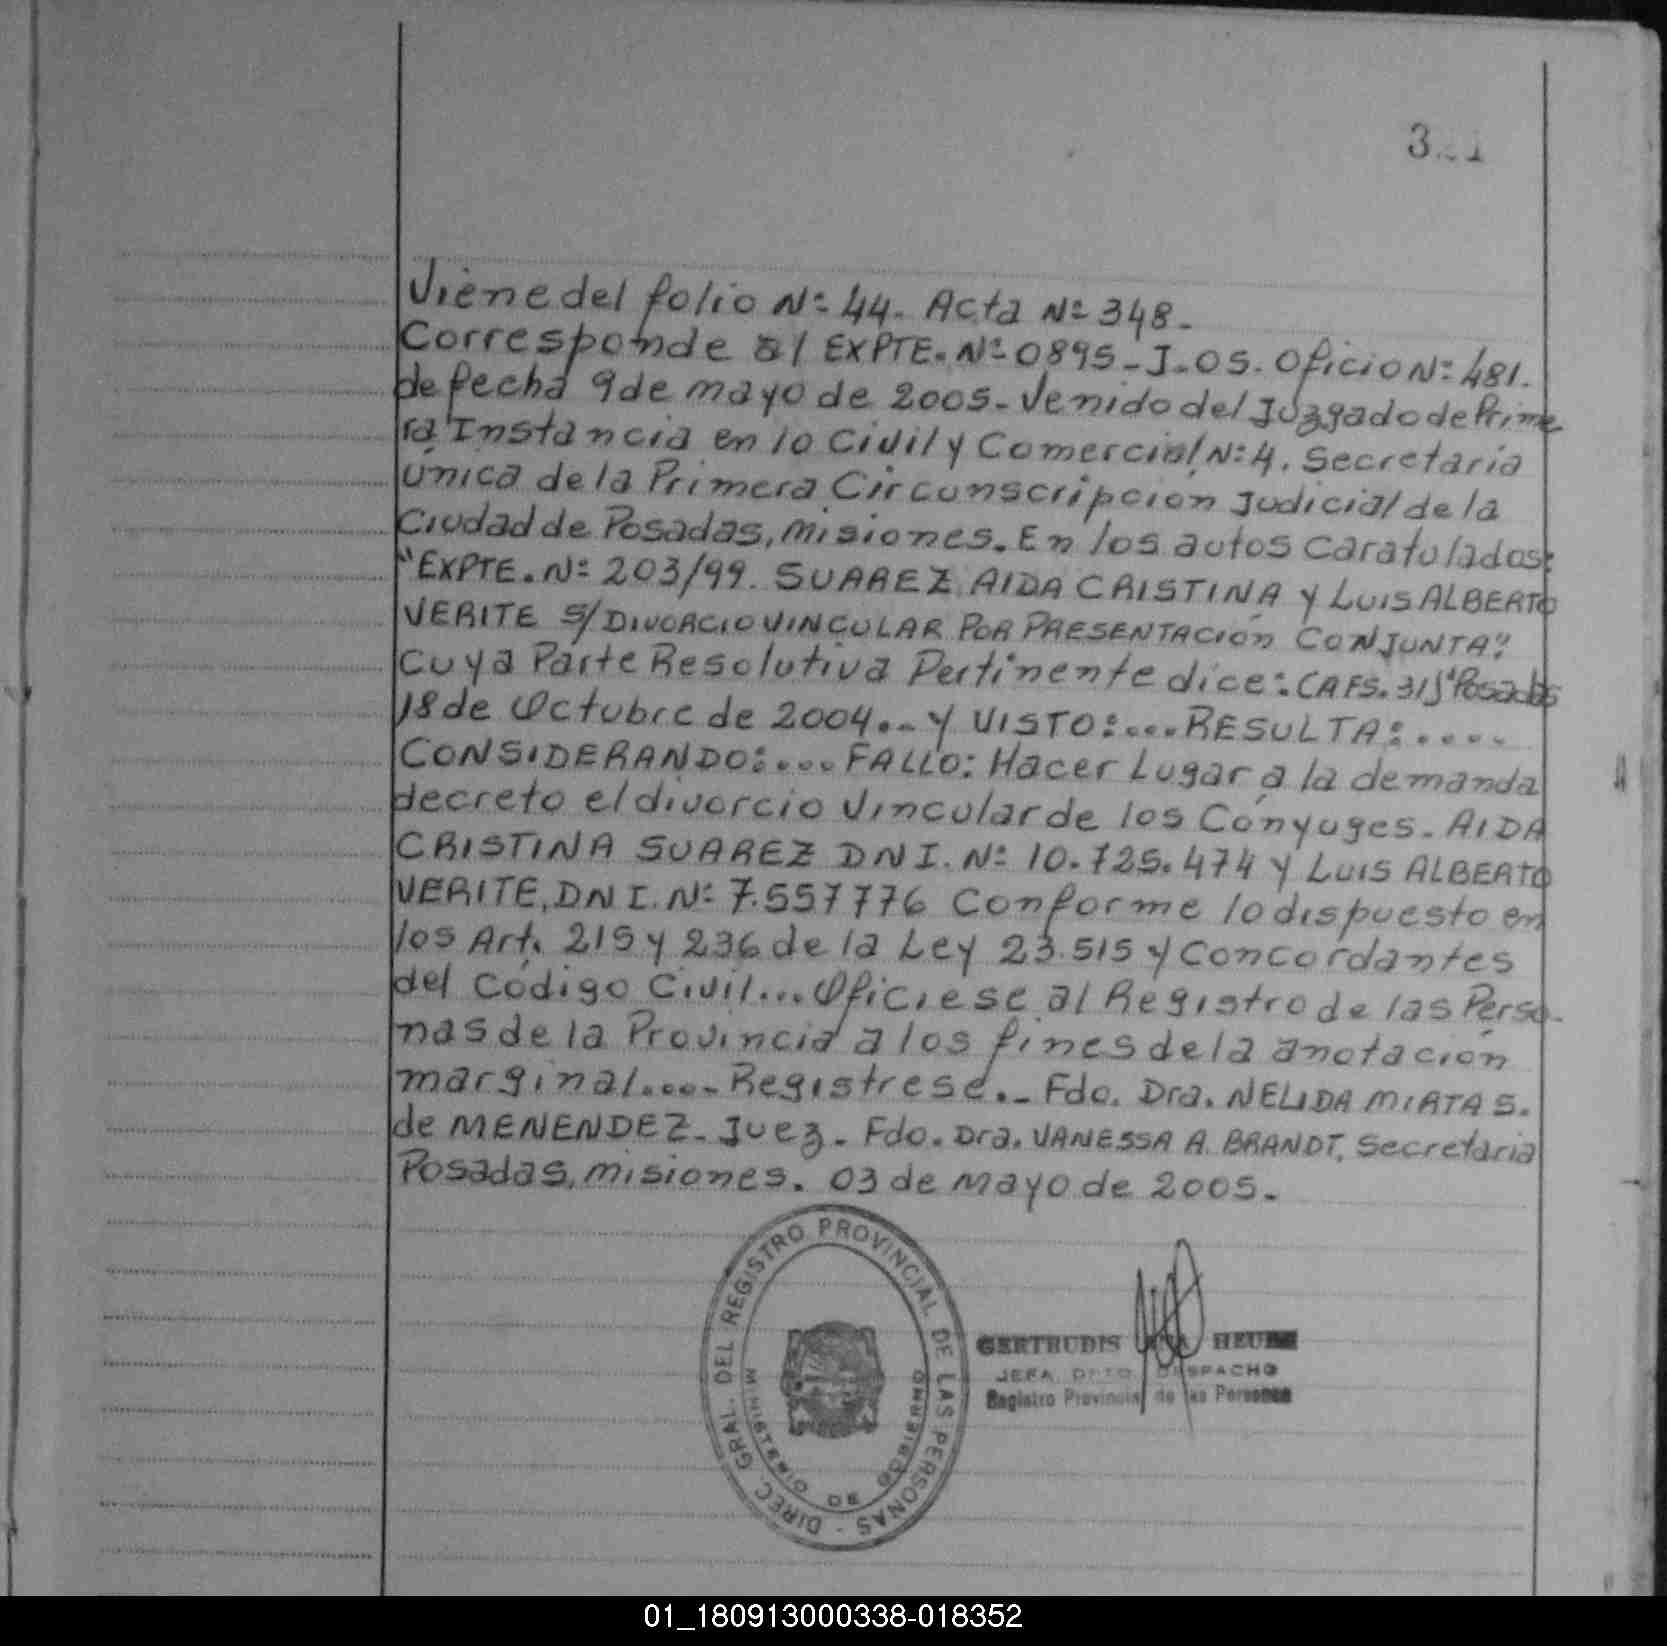 Viene del folio Nº 44. Acta Nº 348.
Corresponde al EXPTE. Nº 0895-J-05. Oficio Nº 481.
de fecha 9 de mayo de 2005. Venido del Juzgado de Prime
ra Instancia en lo Civil y Comercial Nº 4. Secretaria
única de la Primera Circunscripción Judicial de la
Ciudad de Posadas, Misiones. En los autos caratulados:
"EXPTE. Nº 203/99. SUAREZ AIDA CRISTINA y LUIS ALBERTO
VERITE S/ DIVORCIO VINCULAR POR PRESENTACIÓN CONJUNTA"
Cuya Parte Resolutiva Pertinente dice: (AFS. 31) "Posadas
18 de Octubre de 2004.- Y VISTO:.... RESULTA:....
CONSIDERANDO:.... FALLO: Hacer Lugar a la demanda
decreto el divorcio Vincular de los Cónyuges. AIDA
CRISTINA SUAREZ DNI. Nº 10.725.474 y LUIS ALBERTO
VERITE, DNI. Nº 7.557776 Conforme lo dispuesto en
los Art. 215 y 236 de la Ley 23.515 y Concordantes
del Código Civil... Ofíciese al Registro de las Perso-
nas de la Provincia a los fines de la anotación
marginal..... Regístrese.- Fdo. Dra. NELIDA MIRTA S.
de MENENDEZ. Juez. Fdo. Dra. VANESSA A. BRANDT, Secretaria
Posadas, Misiones. 03 de Mayo de 2005.
DIREC. GRAL. DEL REGISTRO PROVINCIAL DE LAS PERSONAS -
MINISTERIO DE GOBIERNO
GERTRUDIS
JEFA DPTO. DESPACHO
Registro Provincial de las Personas
01_180913000338-018352